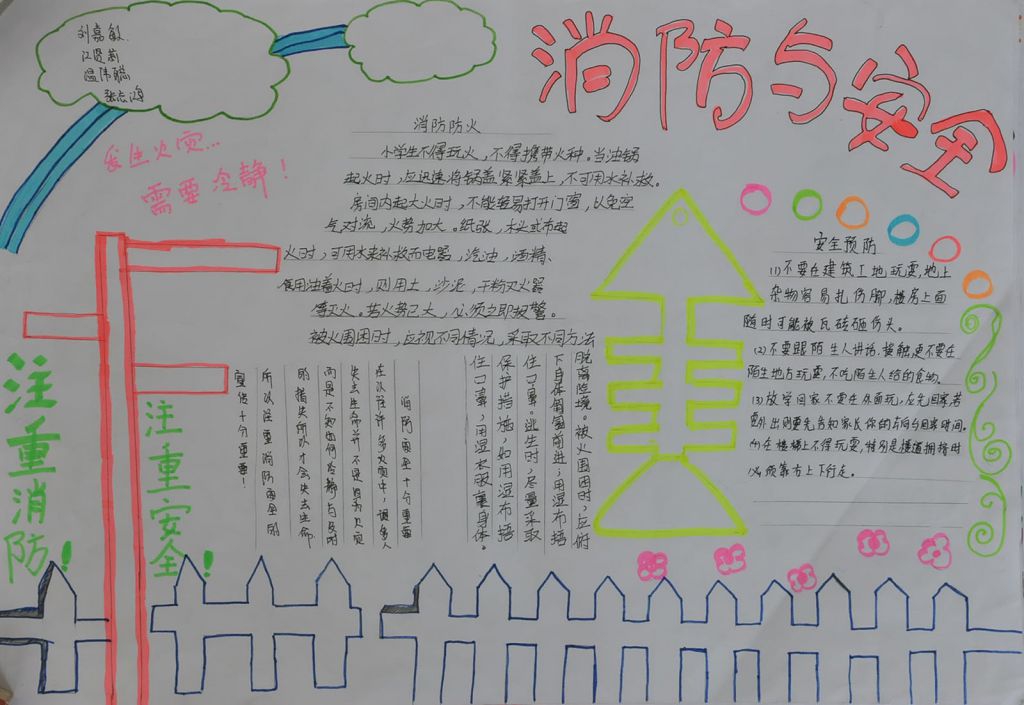 消防与安全
刘嘉敏
江贤莉
温伟聪
张志鸿
发生火灾...
需要冷静！
消防防火
小学生不得玩火，不得携带火种。当油锅
起火时，应迅速将锅盖紧紧盖上，不可用水补救。
房间内起大火时，不能轻易打开门窗，以免空
气对流，火势加大。纸张，木头或布起
火时，可用水来补救而电器，汽油，酒精、
食用油着火时，则用土，沙泥，干粉灭火器
等灭火。若火势已大，必须立即报警。
被火围困时，应视不同情况，采取不同方法
脱离险境。被火围困时，应俯
下身体匍匐前进，用湿布捂
住口鼻。逃生时，尽量采取
保护措施，如用湿布捂
住口鼻，用湿衣服裹身体。
消防安全十分重要
在以往许多火灾中，很多人
失去生命并不是因为火灾
而是不知如何冷静与及时
的措失所以才会失去生命
所以注重消防安全的
宣传十分重要！
安全预防
(1)不要在建筑工地玩耍，地上
杂物容易扎伤脚，楼房上面
随时可能被瓦砖砸伤头。
(2)不要跟陌生人讲话，接触，更不要在
陌生地点玩耍，不吃陌生人给的食物。
(3)放学回家不要在外面玩，应先回家若
要外出则要先告知家长你的去向与回来时间。
(4)在楼梯上不得玩耍，特别是楼道拥挤时
必须靠右上下行走。
注重消防！
注重安全！